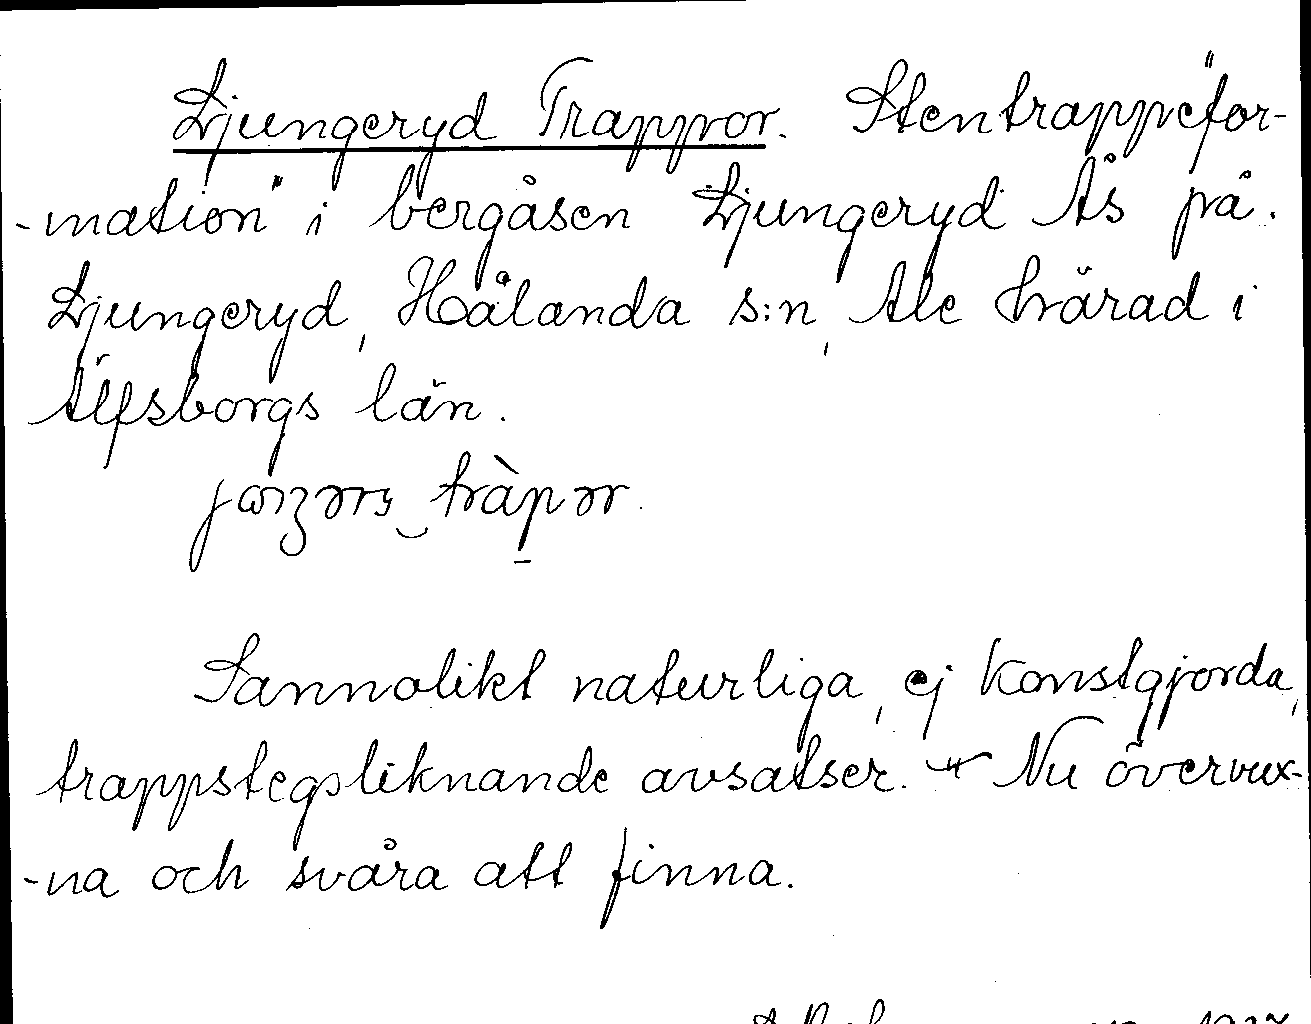 Ljungeryd Trappor. Stentrappe"for-
-mation" i bergåsen Ljungeryd Ås på
Ljungeryd, Hålanda s:n, Ale härad i
Älfsborgs län.
Sannolikt naturliga, ej konstgjorda,
trappstegsliknande avsatser. Nu övervux-
-na och svåra att finna.